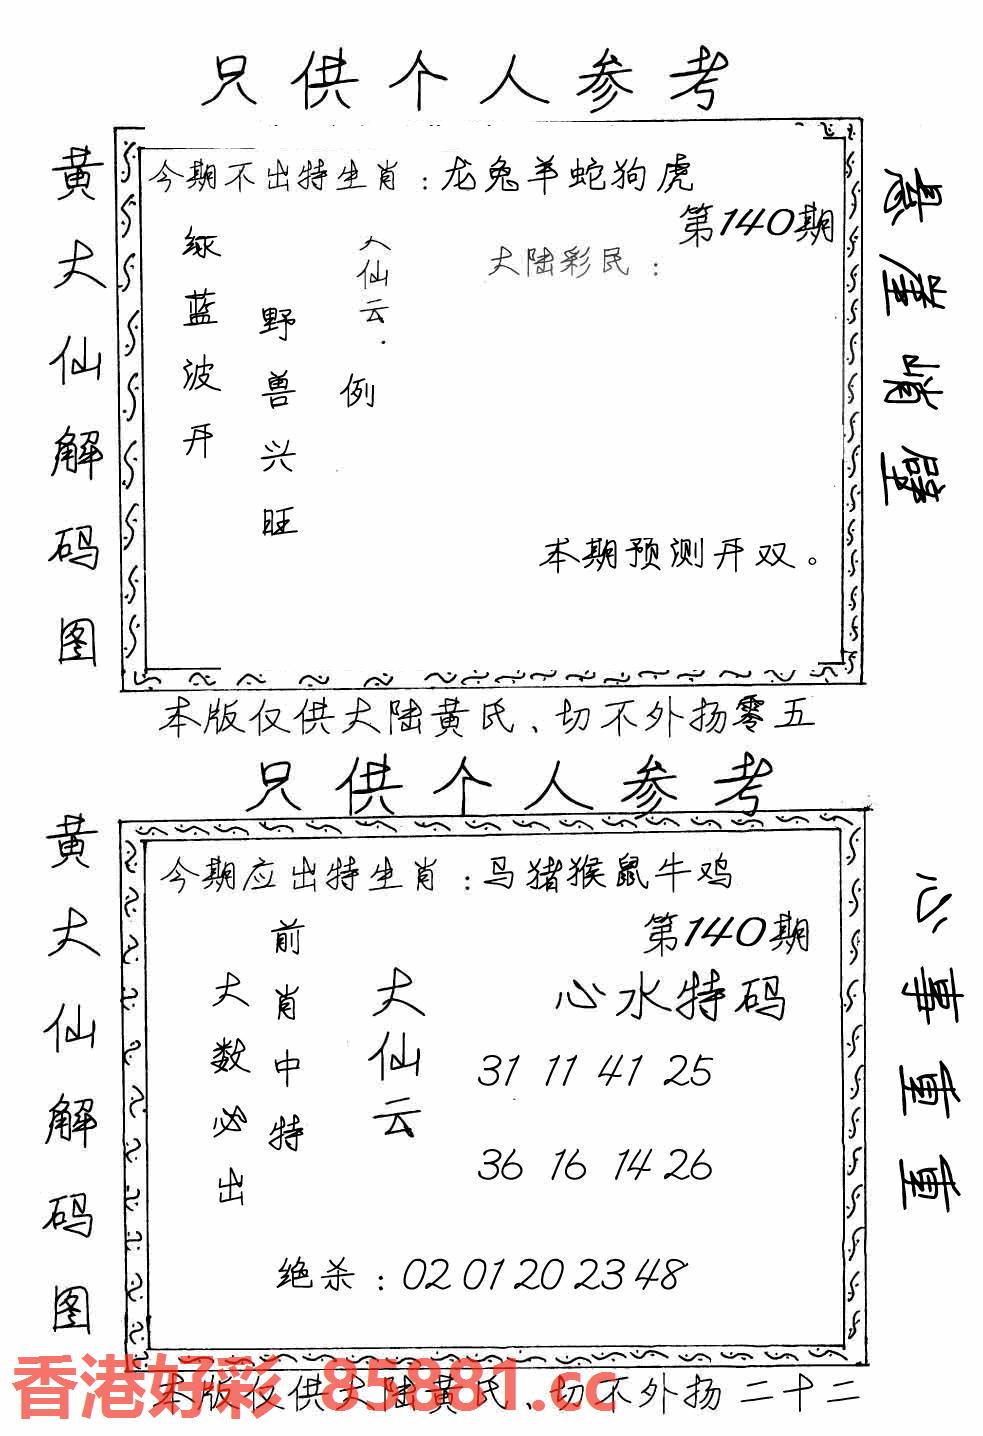 只供个人参考
黄大仙解码图
今期不出特生肖：龙兔羊蛇狗虎
第140期
大仙云：
例
野兽兴旺
绿蓝波开
大陆彩民：
本期预测开双。
悬崖峭壁
本版仅供大陆黄氏、切不外扬零五
只供个人参考
黄大仙解码图
今期应出特生肖：马猪猴鼠牛鸡
第140期
大仙云
前肖中特
大数必出
心水特码
31 11 41 25
36 16 14 26
绝杀：02 01 20 23 48
心事重重
本版仅供大陆黄氏、切不外扬二十二
香港好彩 85881.cc